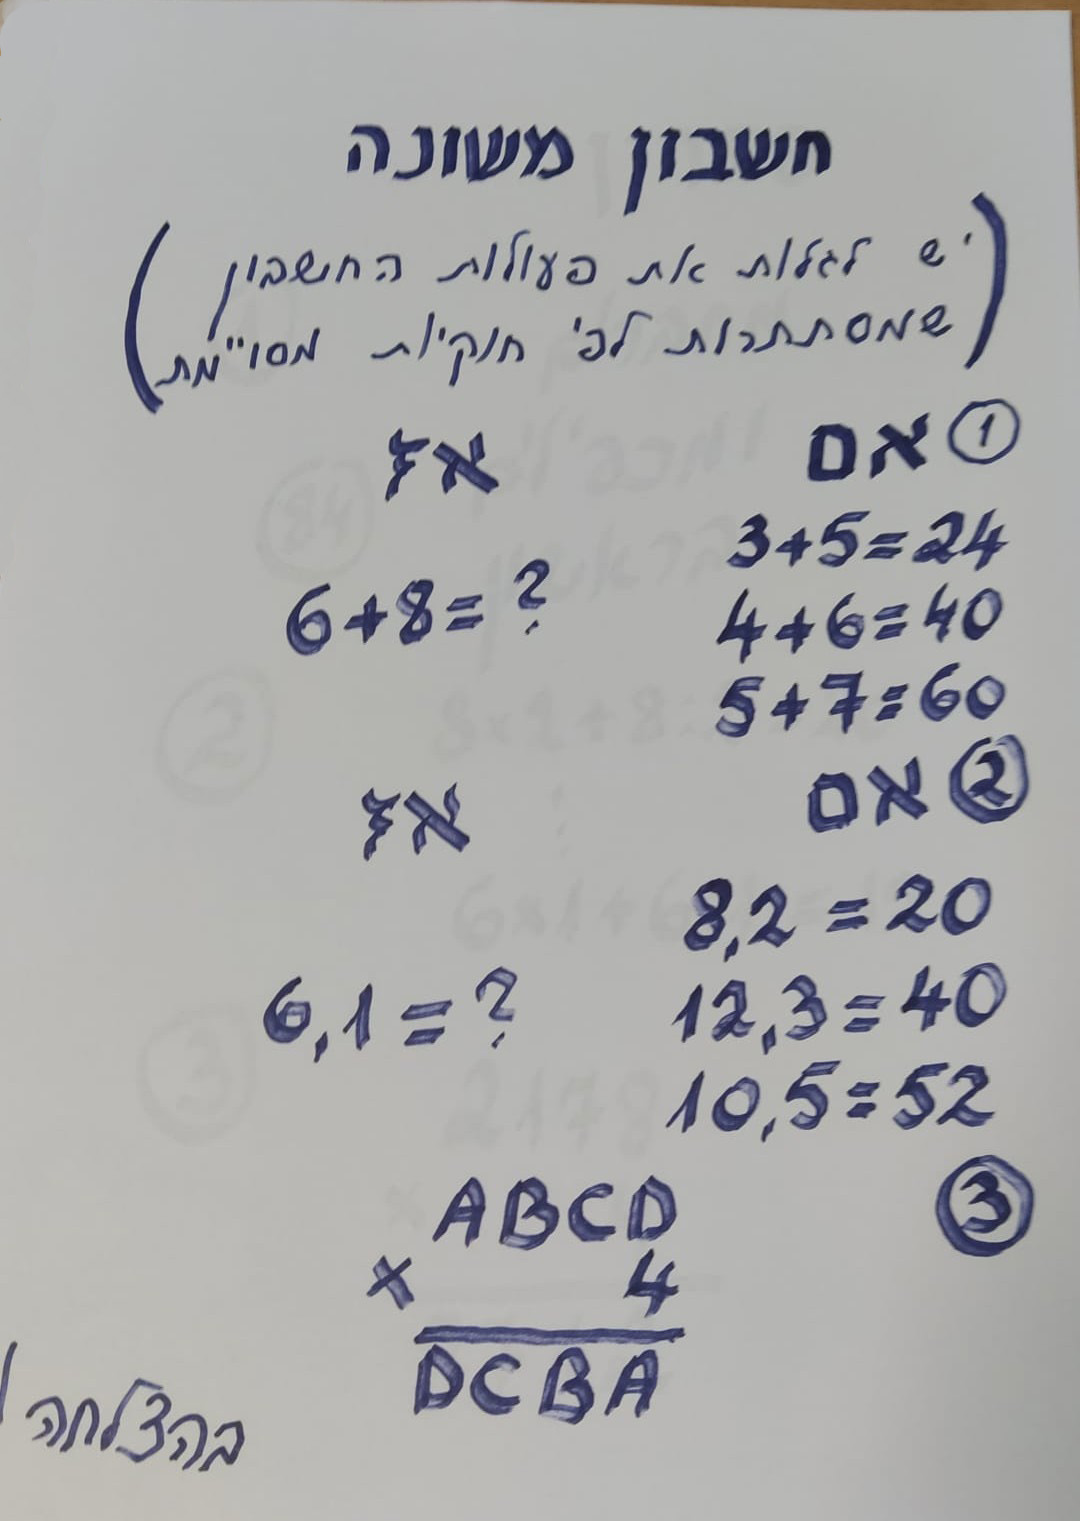 חשבון משונה
(יש לגלות את פעולות החשבון
שמסתתרות לפי חוקיות מסויימת)
① אם אז
3+5=24
6+8=?
4+6=40
5+7=60
② אם אז
8,2=20
6,1=?
12,3=40
10,5=52
③
ABCD
× 4
DCBA
בהצלחה!